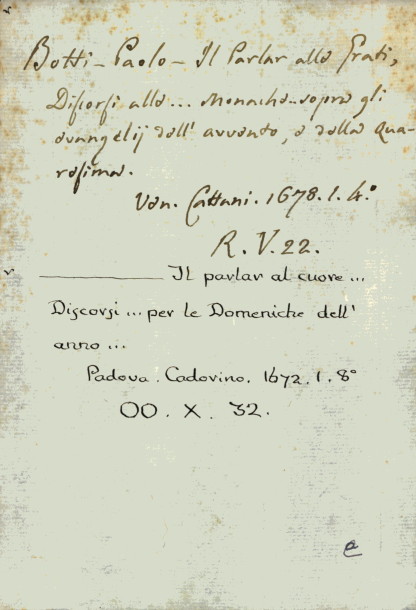 Botti - Paolo - Il Parlar alle Grati,
Discorsi alle ... Monache .. sopra gli
evangelij dell' avvento, e della Qua-
resima.
Ven. Cattani. 1678. 1. 4.º
R. V. 22.
——— Il parlar al cuore ...
Discorsi ... per le Domeniche dell'
anno ...
Padova. Cadorino. 1672. 1. 8º
OO. X. 32.